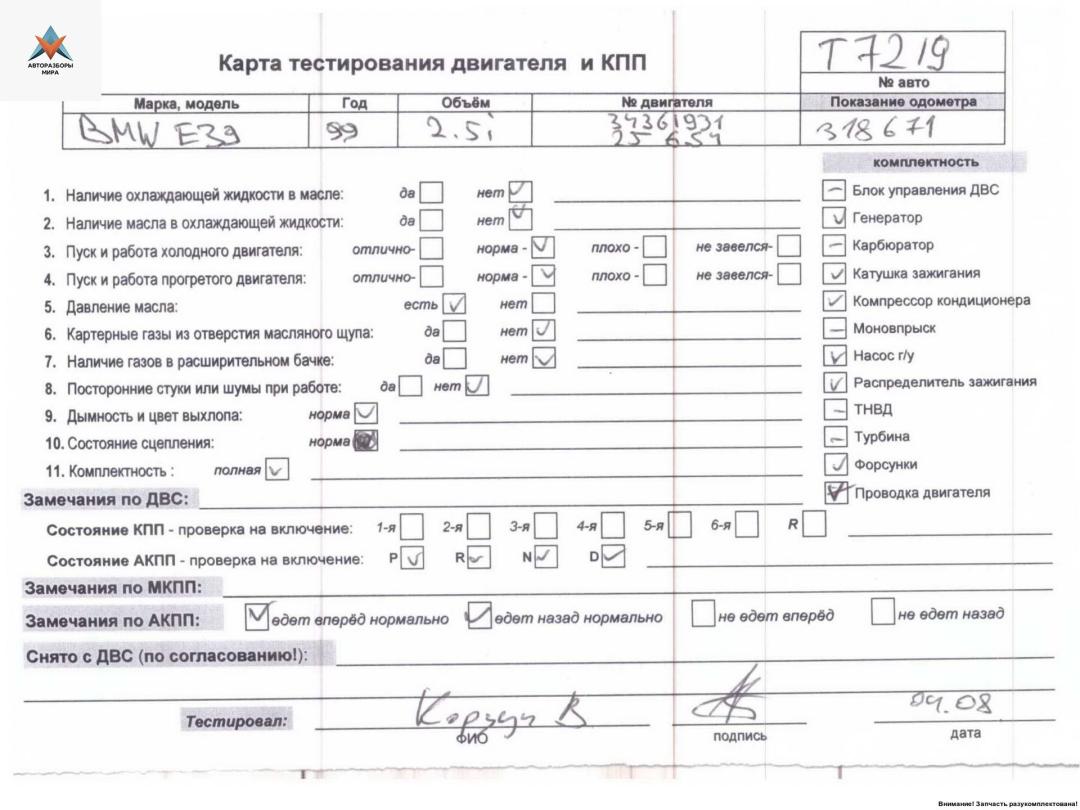 АВТОРАЗБОРЫ
МИРА
Карта тестирования двигателя и КПП
T7219
№ авто
Марка, модель Год Объём № двигателя Показание одометра
BMW E39 99 2.5i 34361931 318671
25 6S4
комплектность
1. Наличие охлаждающей жидкости в масле: да нет
Блок управления ДВС
2. Наличие масла в охлаждающей жидкости: да нет
Генератор
3. Пуск и работа холодного двигателя: отлично- норма - плохо - не завелся-
Карбюратор
4. Пуск и работа прогретого двигателя: отлично- норма - плохо - не завелся-
Катушка зажигания
5. Давление масла: есть нет
Компрессор кондиционера
6. Картерные газы из отверстия масляного щупа: да нет
Моновпрыск
7. Наличие газов в расширительном бачке: да нет
Насос г/у
8. Посторонние стуки или шумы при работе: да нет
Распределитель зажигания
9. Дымность и цвет выхлопа: норма
ТНВД
10. Состояние сцепления: норма
Турбина
11. Комплектность : полная
Форсунки
Замечания по ДВС:
Проводка двигателя
Состояние КПП - проверка на включение: 1-я 2-я 3-я 4-я 5-я 6-я R
Состояние АКПП - проверка на включение: P R N D
Замечания по МКПП:
Замечания по АКПП: едет вперёд нормально едет назад нормально не едет вперёд не едет назад
Снято с ДВС (по согласованию!):
Тестировал: В 04.08
ФИО подпись дата
Внимание! Запчасть разукомплектована!